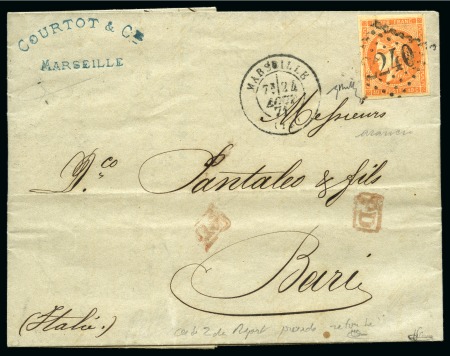 COURTOT & Cie
MARSEILLE
MARSEILLE
7E 24
AOUT
71
240
Messieurs
D.co Pantaleo & fils
PD
PD
Bari
(Italie.)